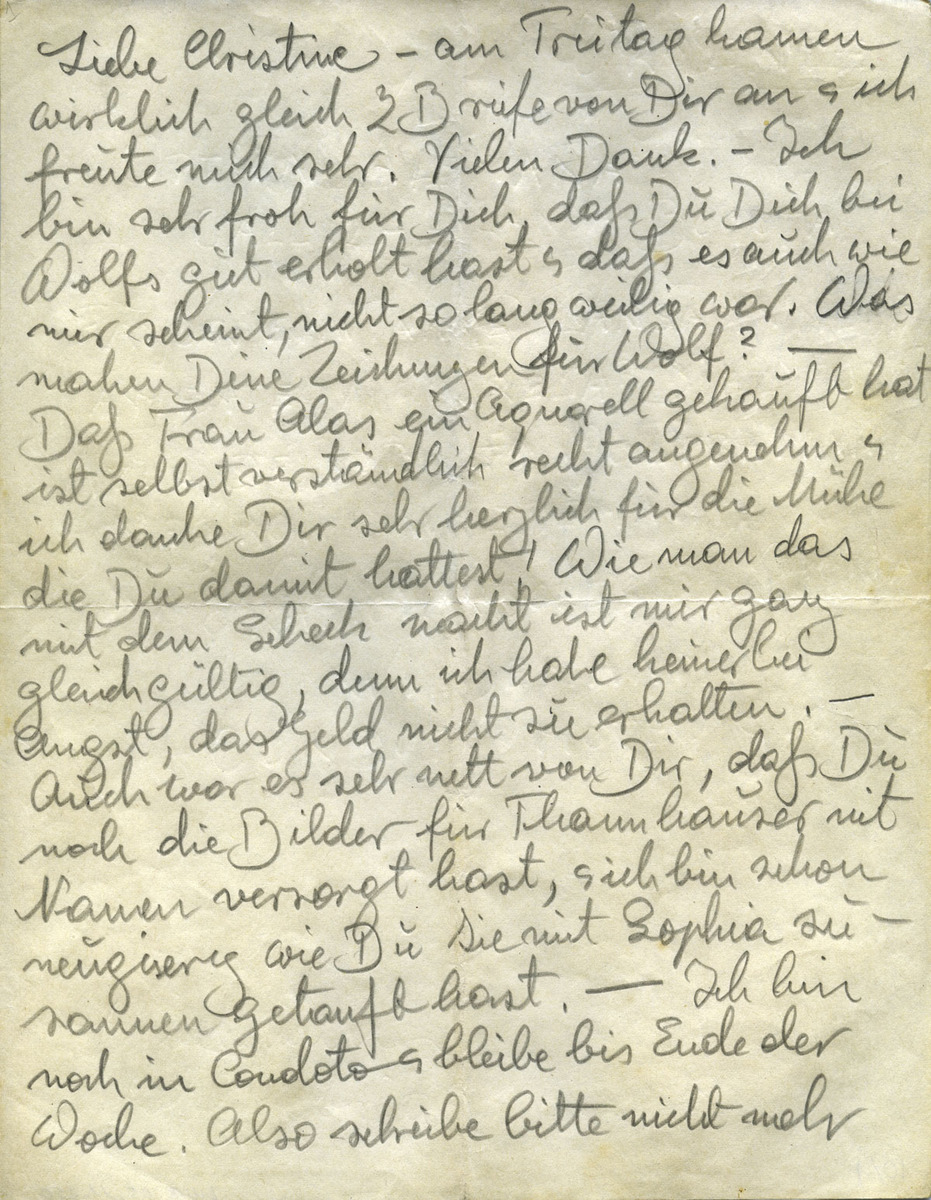 Liebe Christine – am Freitag kamen
wirklich gleich 2 Briefe von Dir an & ich
freute mich sehr. Vielen Dank. – Ich
bin sehr froh für Dich, daß Du Dich bei
Wolfs gut erholt hast & daß es auch wie
mir scheint, nicht so langweilig war. Was
machen Deine Zeichnungen für Wolf? —
Daß Frau Alas ein Aquarell gekauft hat
ist selbstverständlich recht angenehm &
ich danke Dir sehr herzlich für die Mühe
die Du damit hattest! Wie man das
mit dem Scheck macht ist mir ganz
gleichgültig, denn ich habe keinerlei
Angst, das Geld nicht zu erhalten. –
Auch war es sehr nett von Dir, daß Du
noch die Bilder für Thannhauser mit
Namen versorgt hast, & ich bin schon
neugierig wie Du sie mit Sophia zu-
sammen getauft hast. — Ich bin
noch in Condoto & bleibe bis Ende der
Woche. Also schreibe bitte nicht mehr